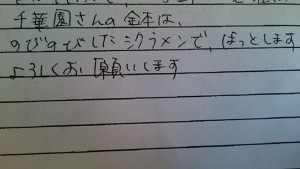 千華園さんの金本は、
のびのびしたシクラメンで、ほっとします
よろしくお願いします